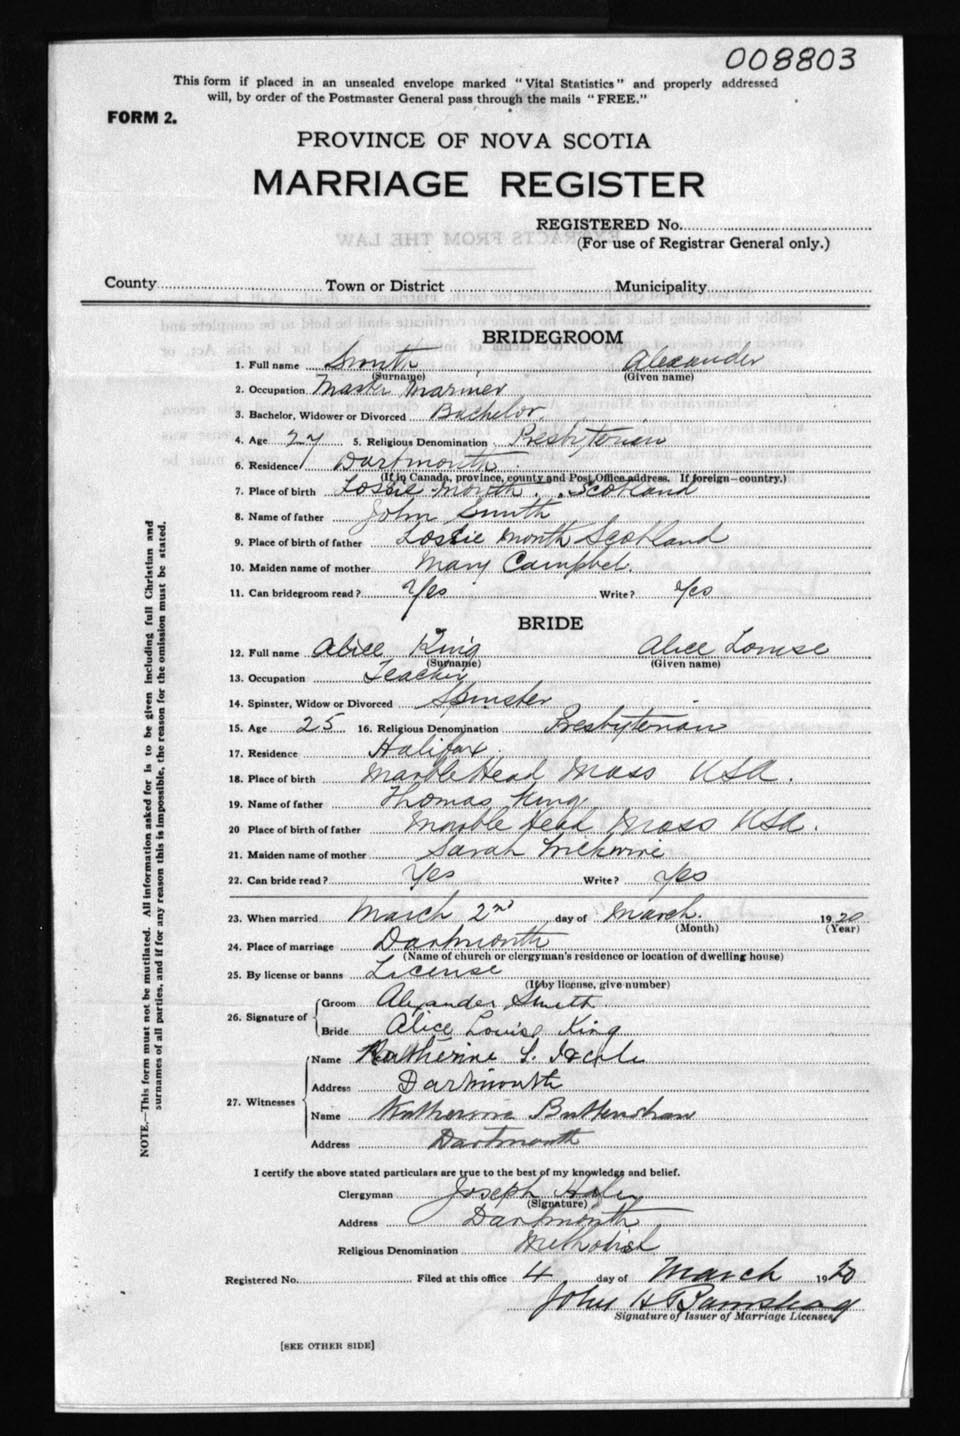 008803
This form if placed in an unsealed envelope marked "Vital Statistics" and properly addressed
will, by order of the Postmaster General pass through the mails "FREE."
FORM 2.
PROVINCE OF NOVA SCOTIA
MARRIAGE REGISTER
REGISTERED No.
(For use of Registrar General only.)
EXTRACTS FROM THE LAW
County Town or District Municipality
BRIDEGROOM
1. Full name Smith Alexander
(Surname) (Given name)
2. Occupation Master Mariner
3. Bachelor, Widower or Divorced Bachelor
4. Age 27 5. Religious Denomination Presbyterian
6. Residence Dartmouth
(If in Canada, province, county and Post Office address. If foreign—country.)
7. Place of birth Lossie Mouth Scotland
8. Name of father John Smith
9. Place of birth of father Lossie Mouth Scotland
10. Maiden name of mother Mary Campbel.
11. Can bridegroom read? Yes Write? Yes
BRIDE
12. Full name Alice King Alice Louise
(Surname) (Given name)
13. Occupation Teacher
14. Spinster, Widow or Divorced Spinster
15. Age 25 16. Religious Denomination Presbyterian
17. Residence Halifax
18. Place of birth Marble Head Mass USA.
19. Name of father Thomas King
20 Place of birth of father Marble Head Mass USA.
21. Maiden name of mother Sarah
22. Can bride read? Yes Write? Yes
23. When married March 2nd day of March. 1920
(Month) (Year)
24. Place of marriage Dartmouth
(Name of church or clergyman's residence or location of dwelling house)
25. By license or banns License
(If by license, give number)
26. Signature of Groom Alexander Smith
Bride Alice Louise King
27. Witnesses Name Katherine L.
Address Dartmouth
Name Katherine
Address Dartmouth
I certify the above stated particulars are true to the best of my knowledge and belief.
Clergyman Joseph
(Signature)
Address Dartmouth
Religious Denomination Methodist
Registered No. Filed at this office 4 day of March 1920
John H
Signature of Issuer of Marriage Licenses
[SEE OTHER SIDE]
NOTE.—This form must not be mutilated. All information asked for is to be given including full Christian and
surnames of all parties, and if for any reason this is impossible, the reason for the omission must be stated.